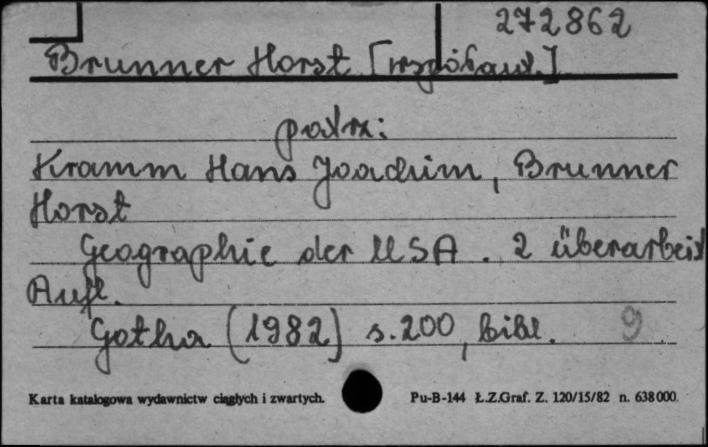 272862
Brunner Horst [współaut.]
patrz:
Kramm Hans Joachim, Brunner
Horst
Geographie der USA. 2 überarbeit
Aufl.
Gotha (1982) s. 200, bibl. 9
Karta katalogowa wydawnictw ciągłych i zwartych. Pu-B-144 Ł.Z.Graf. Z. 120/15/82 n. 638000.